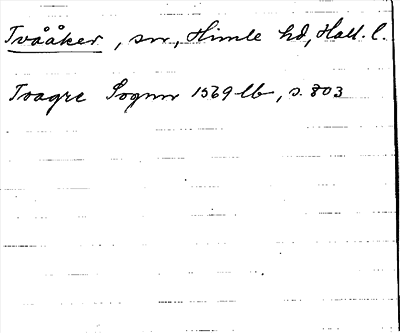 Tvååker, sn, Himle hd, Hall. l.
Tvagre Sognn 1569 lb, s. 803